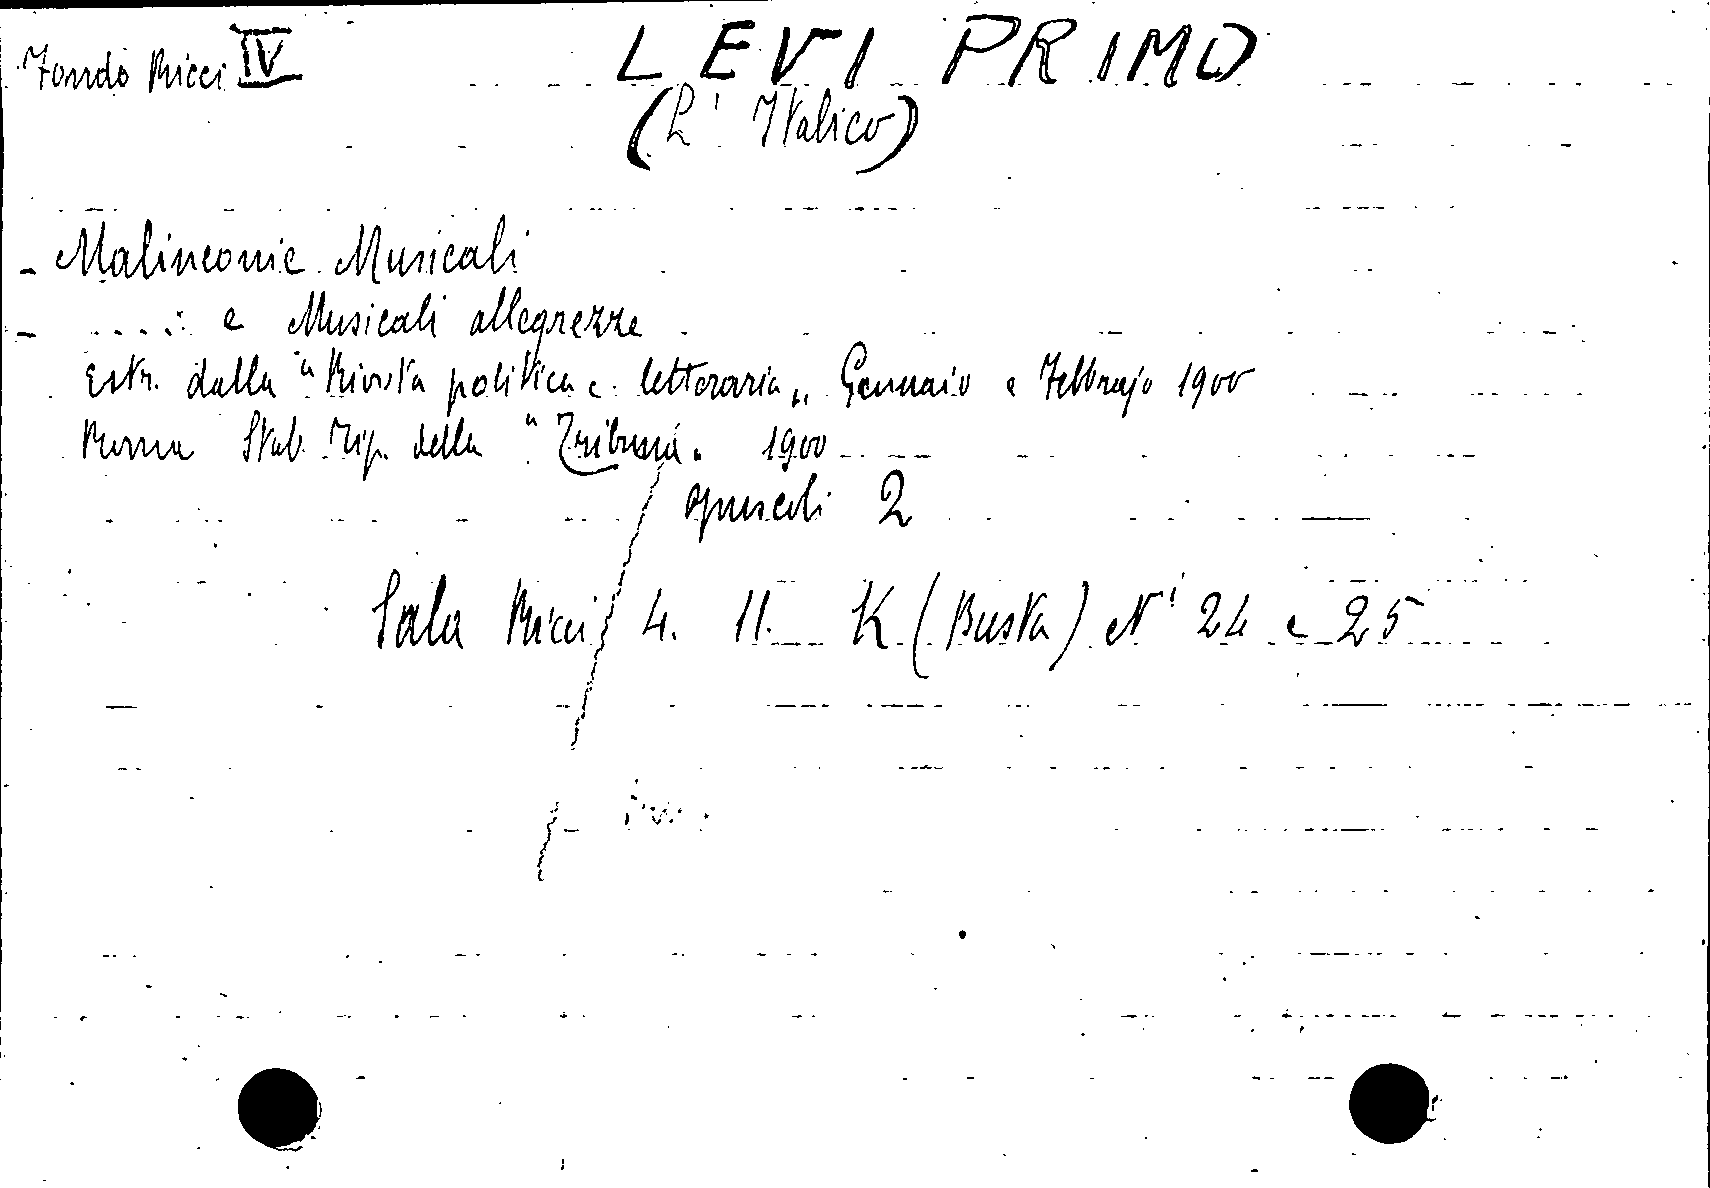 Fondo Ricci IV
LEVI PRIMO
(L' Italico)
- Malinconie Musicali
- ..... e Musicali allegrezze
Estr. dalla "Rivista politica e letteraria" Gennaio e Febbrajo 1900
Roma Stab. Tip. della "Tribuna" 1900
opuscoli 2
Sala Ricci 4. 11. K (Busta) Ni 24 e 25